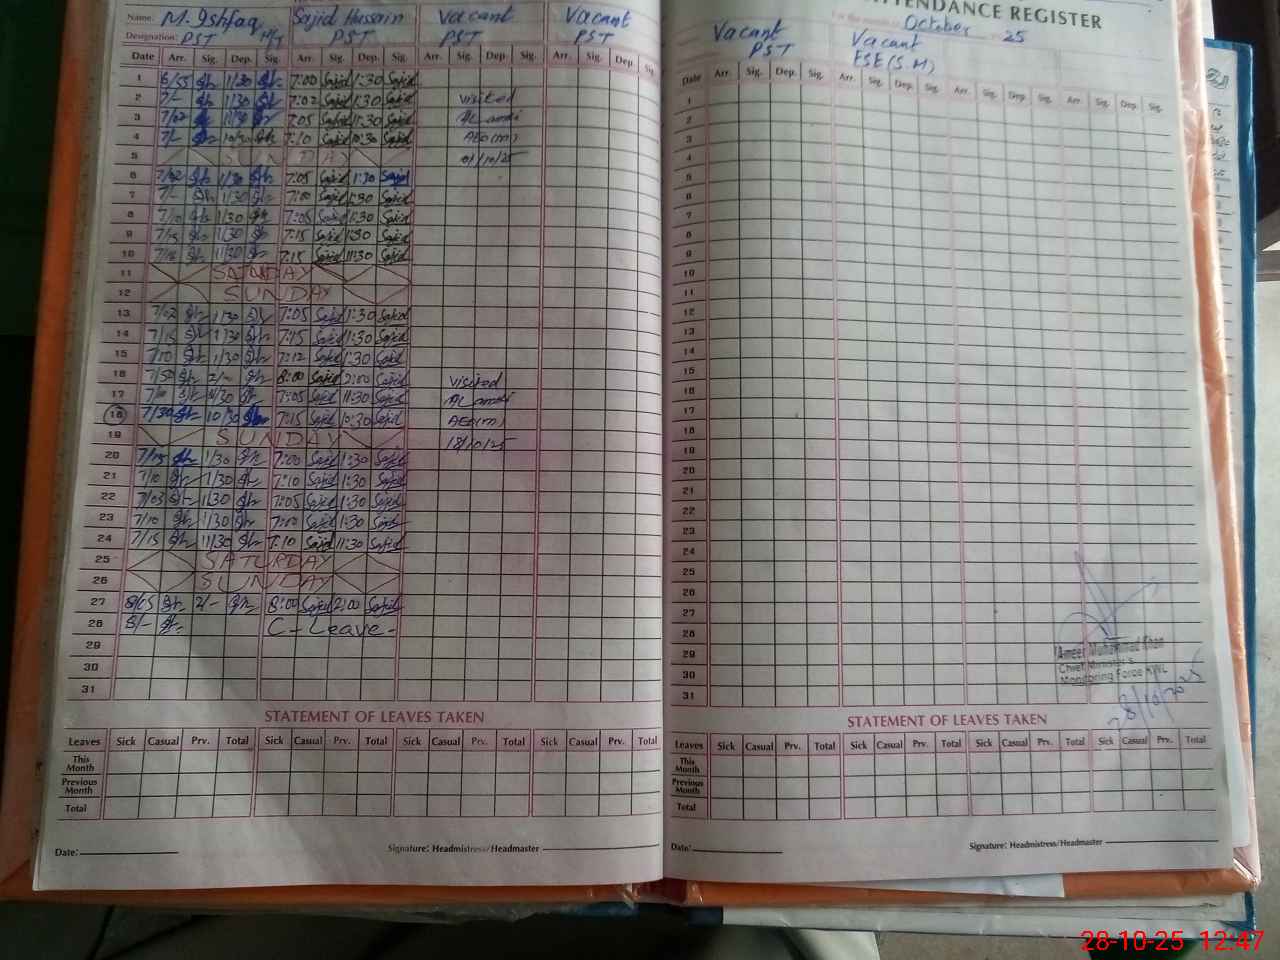 ATTENDANCE REGISTER
For the month of October 25
Name: M. Ishfaq H/T Sajid Hussain Vacant Vacant
Designation: PST PST PST PST
Vacant PST Vacant ESE(S.M)
Date Arr. Sig. Dep. Sig. Arr. Sig. Dep. Sig. Arr. Sig. Dep. Sig. Arr. Sig. Dep. Sig.
1 6/55 1/30 7:00 Sajid 1:30 Sajid
2 7/- 1/30 7:02 Sajid 1:30 Sajid visited
3 7/02 11/30 7:05 Sajid 11:30 Sajid
4 7/- 10/30 7:10 Sajid 10:30 Sajid AEO(m)
5 SUNDAY 01/10/25
6 7/02 1/30 7:05 Sajid 1:30 Sajid
7 7/- 1/30 7:00 Sajid 1:30 Sajid
8 7/10 1/30 7:05 Sajid 1:30 Sajid
9 7/15 1/30 7:15 Sajid 1:30 Sajid
10 11/30 7:15 Sajid 11:30 Sajid
11 SATURDAY
12 SUNDAY
13 7/02 1/30 7:05 Sajid 1:30 Sajid
14 7/15 1/30 7:15 Sajid 1:30 Sajid
15 7/10 1/30 7:12 Sajid 1:30 Sajid
16 7/50 2/- 8:00 Sajid 2:00 Sajid visited
17 7/10 11/30 7:05 Sajid 11:30 Sajid
18 7/30 10/30 7:15 Sajid 10:30 Sajid AEO(m)
19 SUNDAY 18/10/25
20 7/15 1/30 7:00 Sajid 1:30 Sajid
21 7/10 1/30 7:10 Sajid 1:30 Sajid
22 7/03 1/30 7:05 Sajid 1:30 Sajid
23 7/10 1/30 7:00 Sajid 1:30 Sajid
24 7/15 11/30 7:10 Sajid 11:30 Sajid
25 SATURDAY
26 SUNDAY
27 8/05 2/- 8:00 Sajid 2:00 Sajid
28 8/- C-Leave-
29
30
31
STATEMENT OF LEAVES TAKEN
Leaves Sick Casual Prv. Total Sick Casual Prv. Total Sick Casual Prv. Total Sick Casual Prv. Total
This Month
Previous Month
Total
Date: Signature: Headmistress/Headmaster
Date Arr. Sig. Dep. Sig. Arr. Sig. Dep. Sig. Arr. Sig. Dep. Sig. Arr. Sig. Dep. Sig.
1
2
3
4
5
6
7
8
9
10
11
12
13
14
15
16
17
18
19
20
21
22
23
24
25
26
27
28
29
30
31
Ameer Muhammad Khan
Chief Minister's
Monitoring Force KWL
28/10/2025
STATEMENT OF LEAVES TAKEN
Leaves Sick Casual Prv. Total Sick Casual Prv. Total Sick Casual Prv. Total Sick Casual Prv. Total
This Month
Previous Month
Total
Date: Signature: Headmistress/Headmaster
28-10-25 12:47